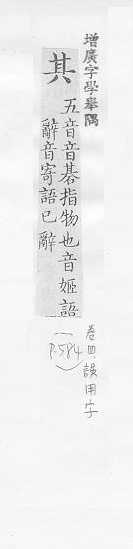 增廣字學舉隅
其
五音音碁指物也音姬語
辭音寄語已辭
卷四 誤用字
(P.584)